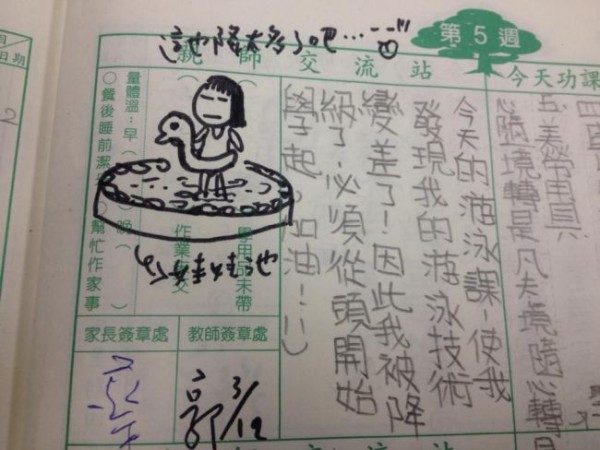 第5週
這也降太多了吧…
親師交流站
今天功課
月/
日期
量體溫:早(
晚(
○餐後睡前潔
○幫忙作家事
學用品未帶
作業
交
今天的游泳課,使我
發現我的游泳技術
變差了!因此我被降
級了,必須從頭開始
學起。(加油!!)
美勞用具
心隨境轉是凡夫境隨心轉是
家長簽章處
教師簽章處
郭 3/12
交流站